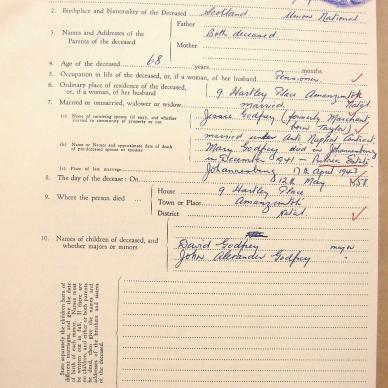 2. Birthplace and Nationality of the Deceased Scotland Union National
3. Names and Addresses of the Parents of the deceased
Father
Both deceased
Mother
4. Age of the deceased 68 years months
5. Occupation in life of the deceased, or, if a woman, of her husband Pensioner
6. Ordinary place of residence of the deceased, or, if a woman, of her husband 9 Hartley Place Amanzimtoti
Natal.
7. Married or unmarried, widower or widow married.
(a) Name of surviving spouse (if any), and whether married in community of property or not
Jessie Godfrey (formerly Merchant,
born Taylor)
married under Ante Nuptial Contract
(b) Name or Names and approximate date of death of pre-deceased spouse or spouses
Mary Godfrey died in Johannesburg
in December 1941 - Estate
(c) Place of last marriage Johannesburg 17th April 1943
8. The day of the decease: On 12th May 1958.
9. Where the person died ...
House 9 Hartley Place
Town or Place Amanzimtoti
District Natal.
10. Names of children of deceased, and whether majors or minors
David Godfrey major
John Alexander Godfrey "
State separately the children born of different marriages, and give the date of birth of each minor. Names must be written out in full. If there are no children, and either or both parents be dead, then give the names and addresses of the brothers and sisters of the deceased.